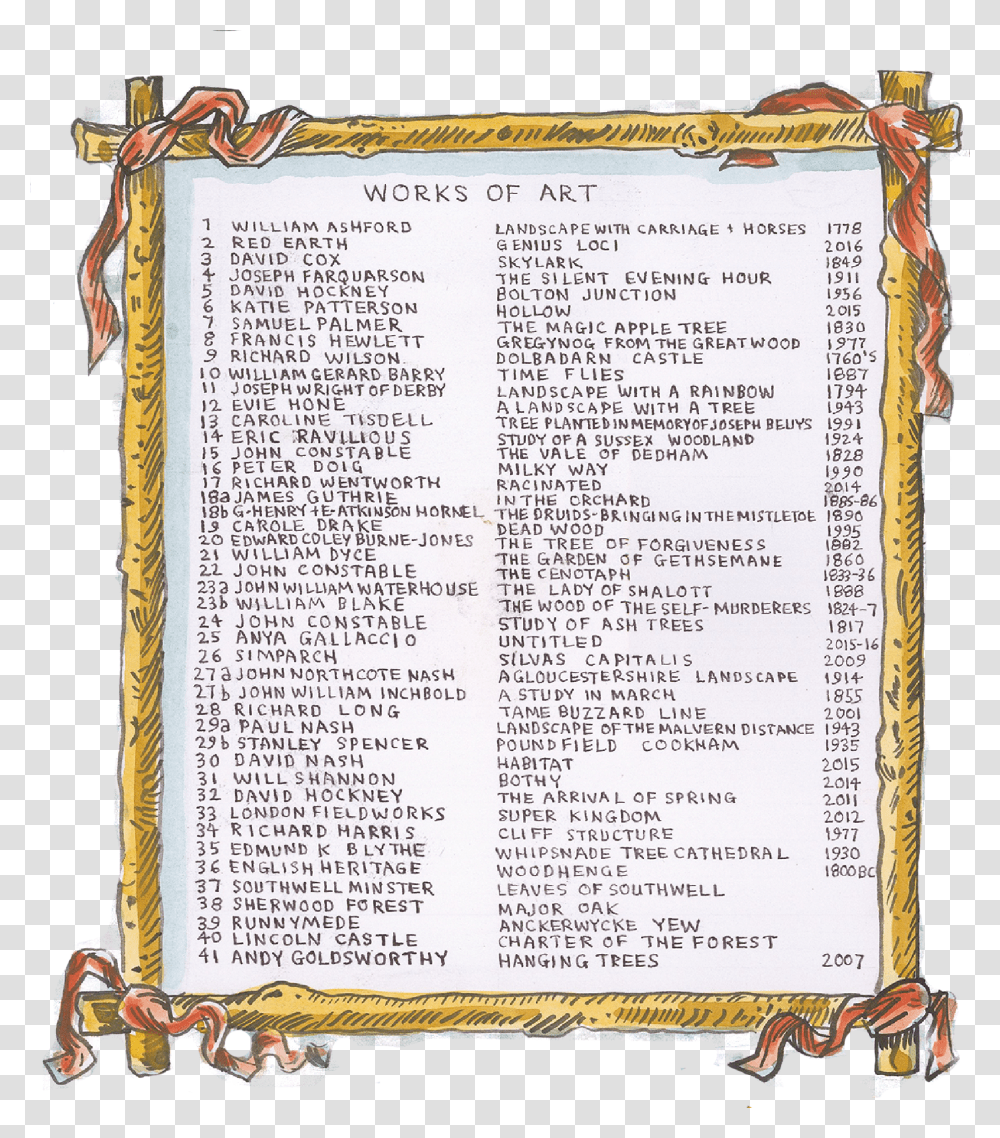 WORKS OF ART
1 WILLIAM ASHFORD LANDSCAPE WITH CARRIAGE + HORSES 1778
2 RED EARTH GENIUS LOCI 2016
3 DAVID COX SKYLARK 1849
4 JOSEPH FARQUARSON THE SILENT EVENING HOUR 1911
5 DAVID HOCKNEY BOLTON JUNCTION 1956
6 KATIE PATTERSON HOLLOW 2015
7 SAMUEL PALMER THE MAGIC APPLE TREE 1830
8 FRANCIS HEWLETT GREGYNOG FROM THE GREAT WOOD 1977
9 RICHARD WILSON DOLBADARN CASTLE 1760'S
10 WILLIAM GERARD BARRY TIME FLIES 1887
11 JOSEPH WRIGHT OF DERBY LANDSCAPE WITH A RAINBOW 1794
12 EVIE HONE A LANDSCAPE WITH A TREE 1943
13 CAROLINE TISDELL TREE PLANTED IN MEMORY OF JOSEPH BEUYS 1991
14 ERIC RAVILIOUS STUDY OF A SUSSEX WOODLAND 1924
15 JOHN CONSTABLE THE VALE OF DEDHAM 1828
16 PETER DOIG MILKY WAY 1990
17 RICHARD WENTWORTH RACINATED 2014
18a JAMES GUTHRIE IN THE ORCHARD 1885-86
18b G·HENRY + E·ATKINSON HORNEL THE DRUIDS-BRINGING IN THE MISTLETOE 1890
19 CAROLE DRAKE DEAD WOOD 1995
20 EDWARD COLEY BURNE-JONES THE TREE OF FORGIVENESS 1882
21 WILLIAM DYCE THE GARDEN OF GETHSEMANE 1860
22 JOHN CONSTABLE THE CENOTAPH 1833-36
23a JOHN WILLIAM WATERHOUSE THE LADY OF SHALOTT 1888
23b WILLIAM BLAKE THE WOOD OF THE SELF-MURDERERS 1824-7
24 JOHN CONSTABLE STUDY OF ASH TREES 1817
25 ANYA GALLACCIO UNTITLED 2015-16
26 SIMPARCH SILVAS CAPITALIS 2009
27a JOHN NORTHCOTE NASH A GLOUCESTERSHIRE LANDSCAPE 1914
27b JOHN WILLIAM INCHBOLD A STUDY IN MARCH 1855
28 RICHARD LONG TAME BUZZARD LINE 2001
29a PAUL NASH LANDSCAPE OF THE MALVERN DISTANCE 1943
29b STANLEY SPENCER POUND FIELD COOKHAM 1935
30 DAVID NASH HABITAT 2015
31 WILL SHANNON BOTHY 2014
32 DAVID HOCKNEY THE ARRIVAL OF SPRING 2011
33 LONDON FIELDWORKS SUPER KINGDOM 2012
34 RICHARD HARRIS CLIFF STRUCTURE 1977
35 EDMUND K BLYTHE WHIPSNADE TREE CATHEDRAL 1930
36 ENGLISH HERITAGE WOODHENGE 1800BC
37 SOUTHWELL MINSTER LEAVES OF SOUTHWELL
38 SHERWOOD FOREST MAJOR OAK
39 RUNNYMEDE ANCKERWYCKE YEW
40 LINCOLN CASTLE CHARTER OF THE FOREST
41 ANDY GOLDSWORTHY HANGING TREES 2007